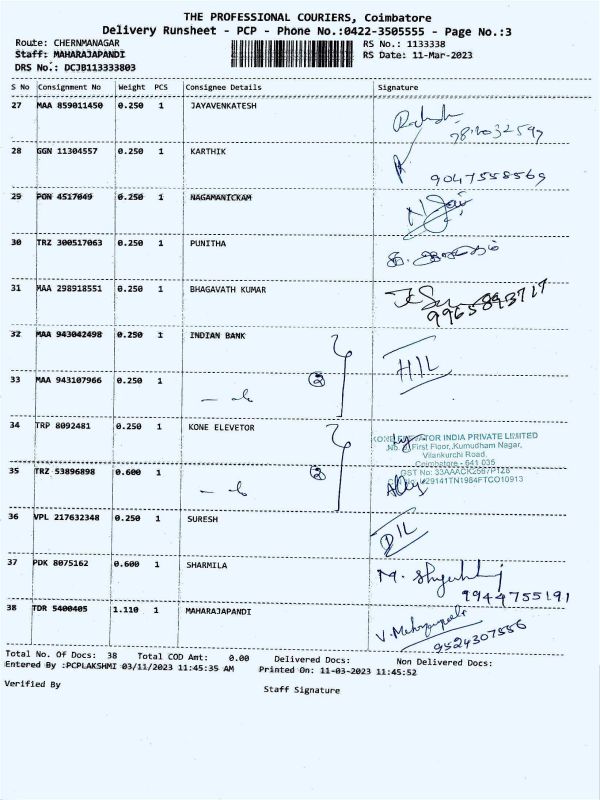 THE PROFESSIONAL COURIERS, Coimbatore
Delivery Runsheet - PCP - Phone No.:0422-3505555 - Page No.:3
Route: CHERNMANAGAR
RS No.: 1133338
Staff: MAHARAJAPANDI
RS Date: 11-Mar-2023
DRS No.: DCJB113333803
S No Consignment No Weight PCS Consignee Details Signature
27 MAA 859011450 0.250 1 JAYAVENKATESH
28 GGN 11304557 0.250 1 KARTHIK
9047558569
29 PON 4517049 0.250 1 NAGAMANICKAM
30 TRZ 300517063 0.250 1 PUNITHA
31 MAA 298918551 0.250 1 BHAGAVATH KUMAR
9965893717
32 MAA 943042498 0.250 1 INDIAN BANK
HIL
33 MAA 943107966 0.250 1
2
34 TRP 8092481 0.250 1 KONE ELEVETOR
INDIA PRIVATE LIMITED
First Floor, Kumudham Nagar,
Vilankurchi Road,
Coimbatore - 641 035
35 TRZ 53896898 0.600 1
2
36 VPL 217632348 0.250 1 SURESH
DIL
37 PDK 8075162 0.600 1 SHARMILA
9944755191
38 TDR 5400405 1.110 1 MAHARAJAPANDI
9524307556
Total No. Of Docs: 38 Total COD Amt: 0.00 Delivered Docs: Non Delivered Docs:
Entered By :PCPLAKSHMI 03/11/2023 11:45:35 AM Printed On: 11-03-2023 11:45:52
Verified By
Staff Signature